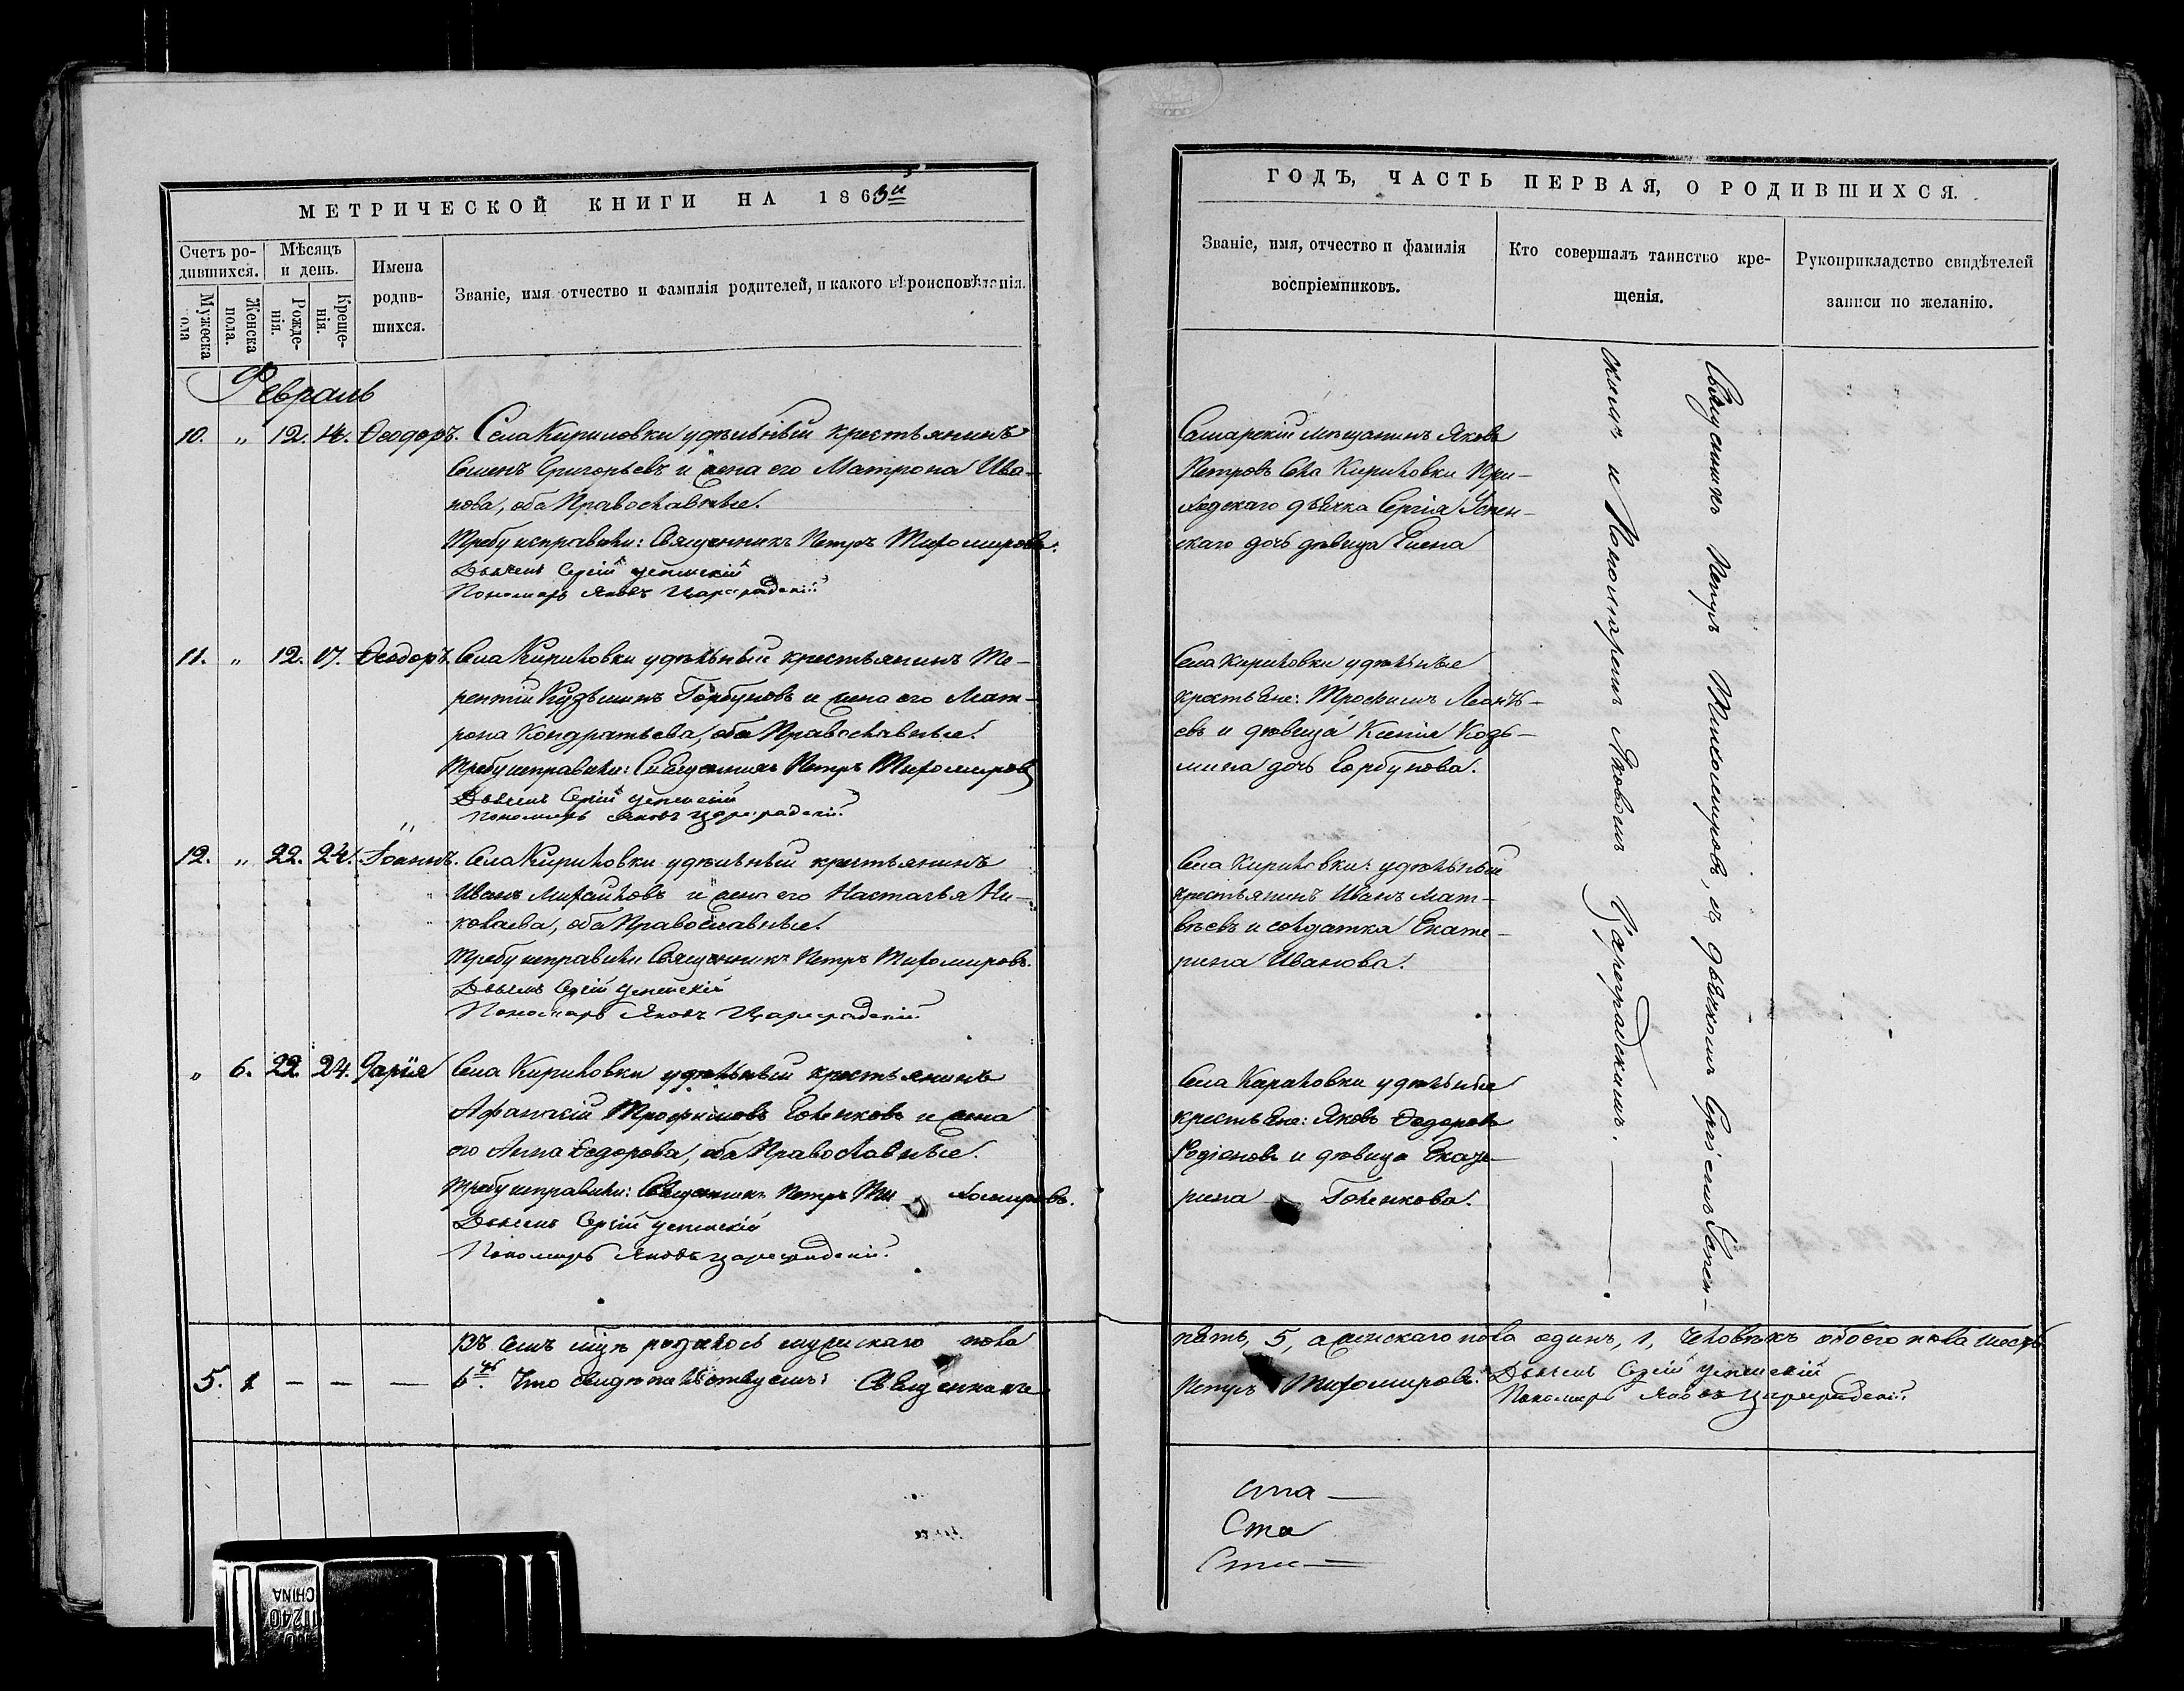 МЕТРИЧЕСКОЙ КНИГИ НА 1863й
Счетъ ро-
дившихся.
Мѣсяцъ
и день.
Имена
родив-
шихся.
Званіе, имя отчество и фамилія родителей, и какого вѣроисповѣданія.
Мужеска
пола
Женска
пола.
Рожде-
нія.
Креще-
нія.
Февраль
10. „ 12. 14. Ѳеодоръ. Села Кириловки удѣльный крестьянинъ
Семенъ Григорьевъ и жена его Матрона Ива-
нова, оба Православные.
Требу исправили: Священникъ Петръ Тихомировъ.
Дьячекъ Сергій Успенскій
Пономарь Яковъ Цареградскій
11. „ 12. 17. Ѳеодоръ. Села Кириловки удѣльный крестьянинъ Те-
рентій Кузьминъ Горбуновъ и жена его Мат-
рона Кондратьева, оба Православные.
Требу исправили: Священникъ Петръ Тихомировъ
Дьячекъ Сергій Успенскій
Пономарь Яковъ Цареградскій.
12. „ 22. 24. Іоаннъ. Села Кириловки удѣльный крестьянинъ
Иванъ Михайловъ и жена его Настасья Ни-
колаева, оба Православные.
Требу исправили Священникъ Петръ Тихомировъ.
Дьячекъ Сергій Успенскій
Пономарь Яковъ Цареградскій
„ 6. 22. 24. Дарія Села Кириловки удѣльный крестьянинъ
Афанасій Трофимовъ Голенковъ и жена
его Анна Ѳедорова, оба Православные.
Требу исправили: Священникъ Петръ Тихомировъ.
Дьячекъ Сергій Успенскій
Пономарь Яковъ Цареградскій.
Въ семъ мѣсяцѣ родилось мужескаго пола
5. 1 — — — 6ть. Что свидѣтельствуемъ: Священникъ
ГОДЪ, ЧАСТЬ ПЕРВАЯ, О РОДИВШИХСЯ.
Званіе, имя, отчество и фамилія
воспріемниковъ.
Кто совершалъ таинство кре-
щенія.
Рукоприкладство свидѣтелей
записи по желанію.
Самарскій мѣщанинъ Яковъ
Петровъ Села Кириловки При-
ходскаго дьячка Сергія Успен-
скаго дочь дѣвица Елена
Села Кириловки удѣльные
крестьяне: Трофимъ Леонть-
евъ и дѣвица Ксенія Козь-
мина дочь Горбунова.
Села Кириловки: удѣльный
крестьянинъ Иванъ Мат-
вѣевъ и солдатка Екате-
рина Иванова.
Села Кариловки удѣльные
крестьяне: Яковъ Ѳедоровъ
Родіоновъ и дѣвица Екате-
рина Голенкова.
Священникъ Петръ Тихомировъ, съ дьячкомъ Сергіемъ Успен-
скимъ и Пономаремъ Яковомъ Цареградскимъ.
пять, 5, а женскаго пола одинъ, 1, человѣкъ обоего пола шесть
Петръ Тихомировъ. Дьячекъ Сергій Успенскій
Пономарь Яковъ Цареградскій.
Ста
Ста
CHINA
11240